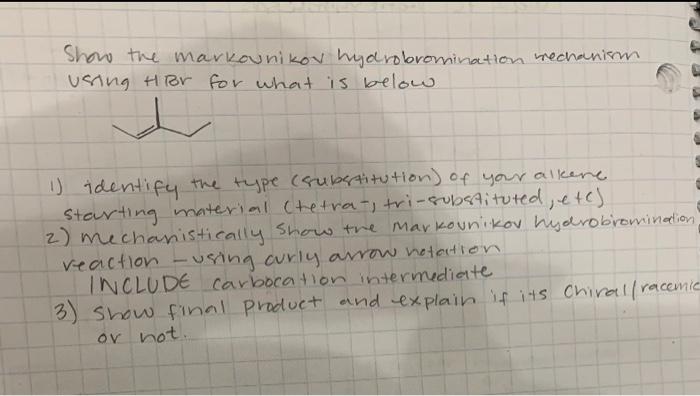 Show the markovnikov hydrobromination mechanism
using HBr for what is below
1) identify the type (substitution) of your alkene
starting material (tetra-, tri-substituted, etc)
2) mechanistically show the Markovnikov hydrobromination
reaction - using curly arrow notation
INCLUDE carbocation intermediate
3) show final product and explain if its chiral/racemic
or not.